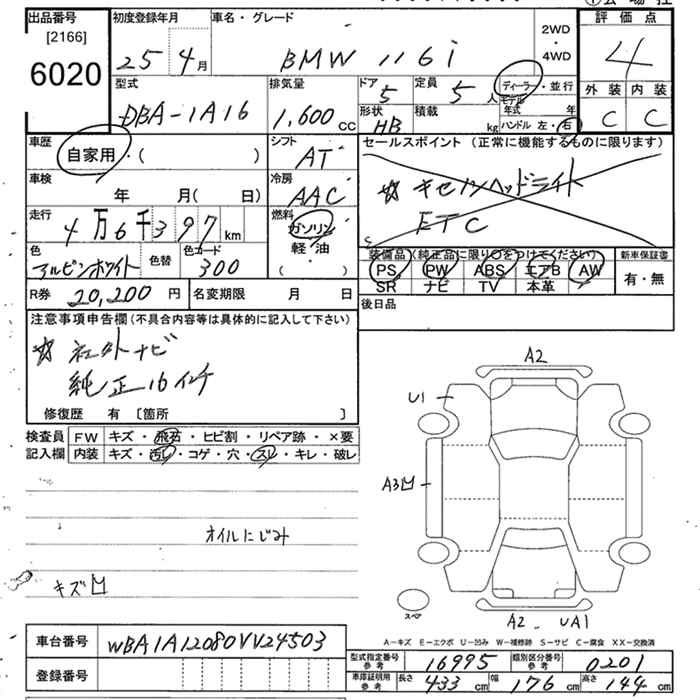 出品番号 初度登録年月 車名・グレード 2WD ・ 4WD 評価点
[2166]
6020
25 4月 BMW 116i 4
型式 排気量 ドア 定員 ディーラー・並行 外装 内装
DBA-1A16 1,600cc 5 5人 モデル年式 年 C C
形状 積載
HB kg ハンドル 左・右
車歴 シフト セールスポイント (正常に機能するものに限ります)
自家用・( ) AT
車検 冷房 ☆ キセノンヘッドライト
年 月(日) AAC ETC
走行 燃料
4万6千397km ガソリン 軽・油 ( )
色 色替 色コード 装備品(純正品に限り○をつけてください) 新車保証書
アルピンホワイト 300 PS PW ABS エアB AW 有・無
SR ナビ TV 本革
R券 20,200円 名変期限 月 日 後日品
注意事項申告欄(不具合内容等は具体的に記入して下さい)
☆ 社外ナビ
純正16インチ
修復歴 有 〔箇所 〕
検査員 FW キズ・飛石・ヒビ割・リペア跡・×要
記入欄 内装 キズ・汚レ・コゲ・穴・スレ・キレ・破レ
オイルにじみ
キズ凹
A2
U1
A3凹
スペア
A2 UA1
A-キズ E-エクボ U-凹み W-補修跡 S-サビ C-腐食 XX-交換済
車台番号 WBA1A12080VV24503
登録番号
型式指定番号参考 16995 類別区分番号参考 0201
車庫証明用参考 長さ 433cm 幅 176cm 高さ 144cm